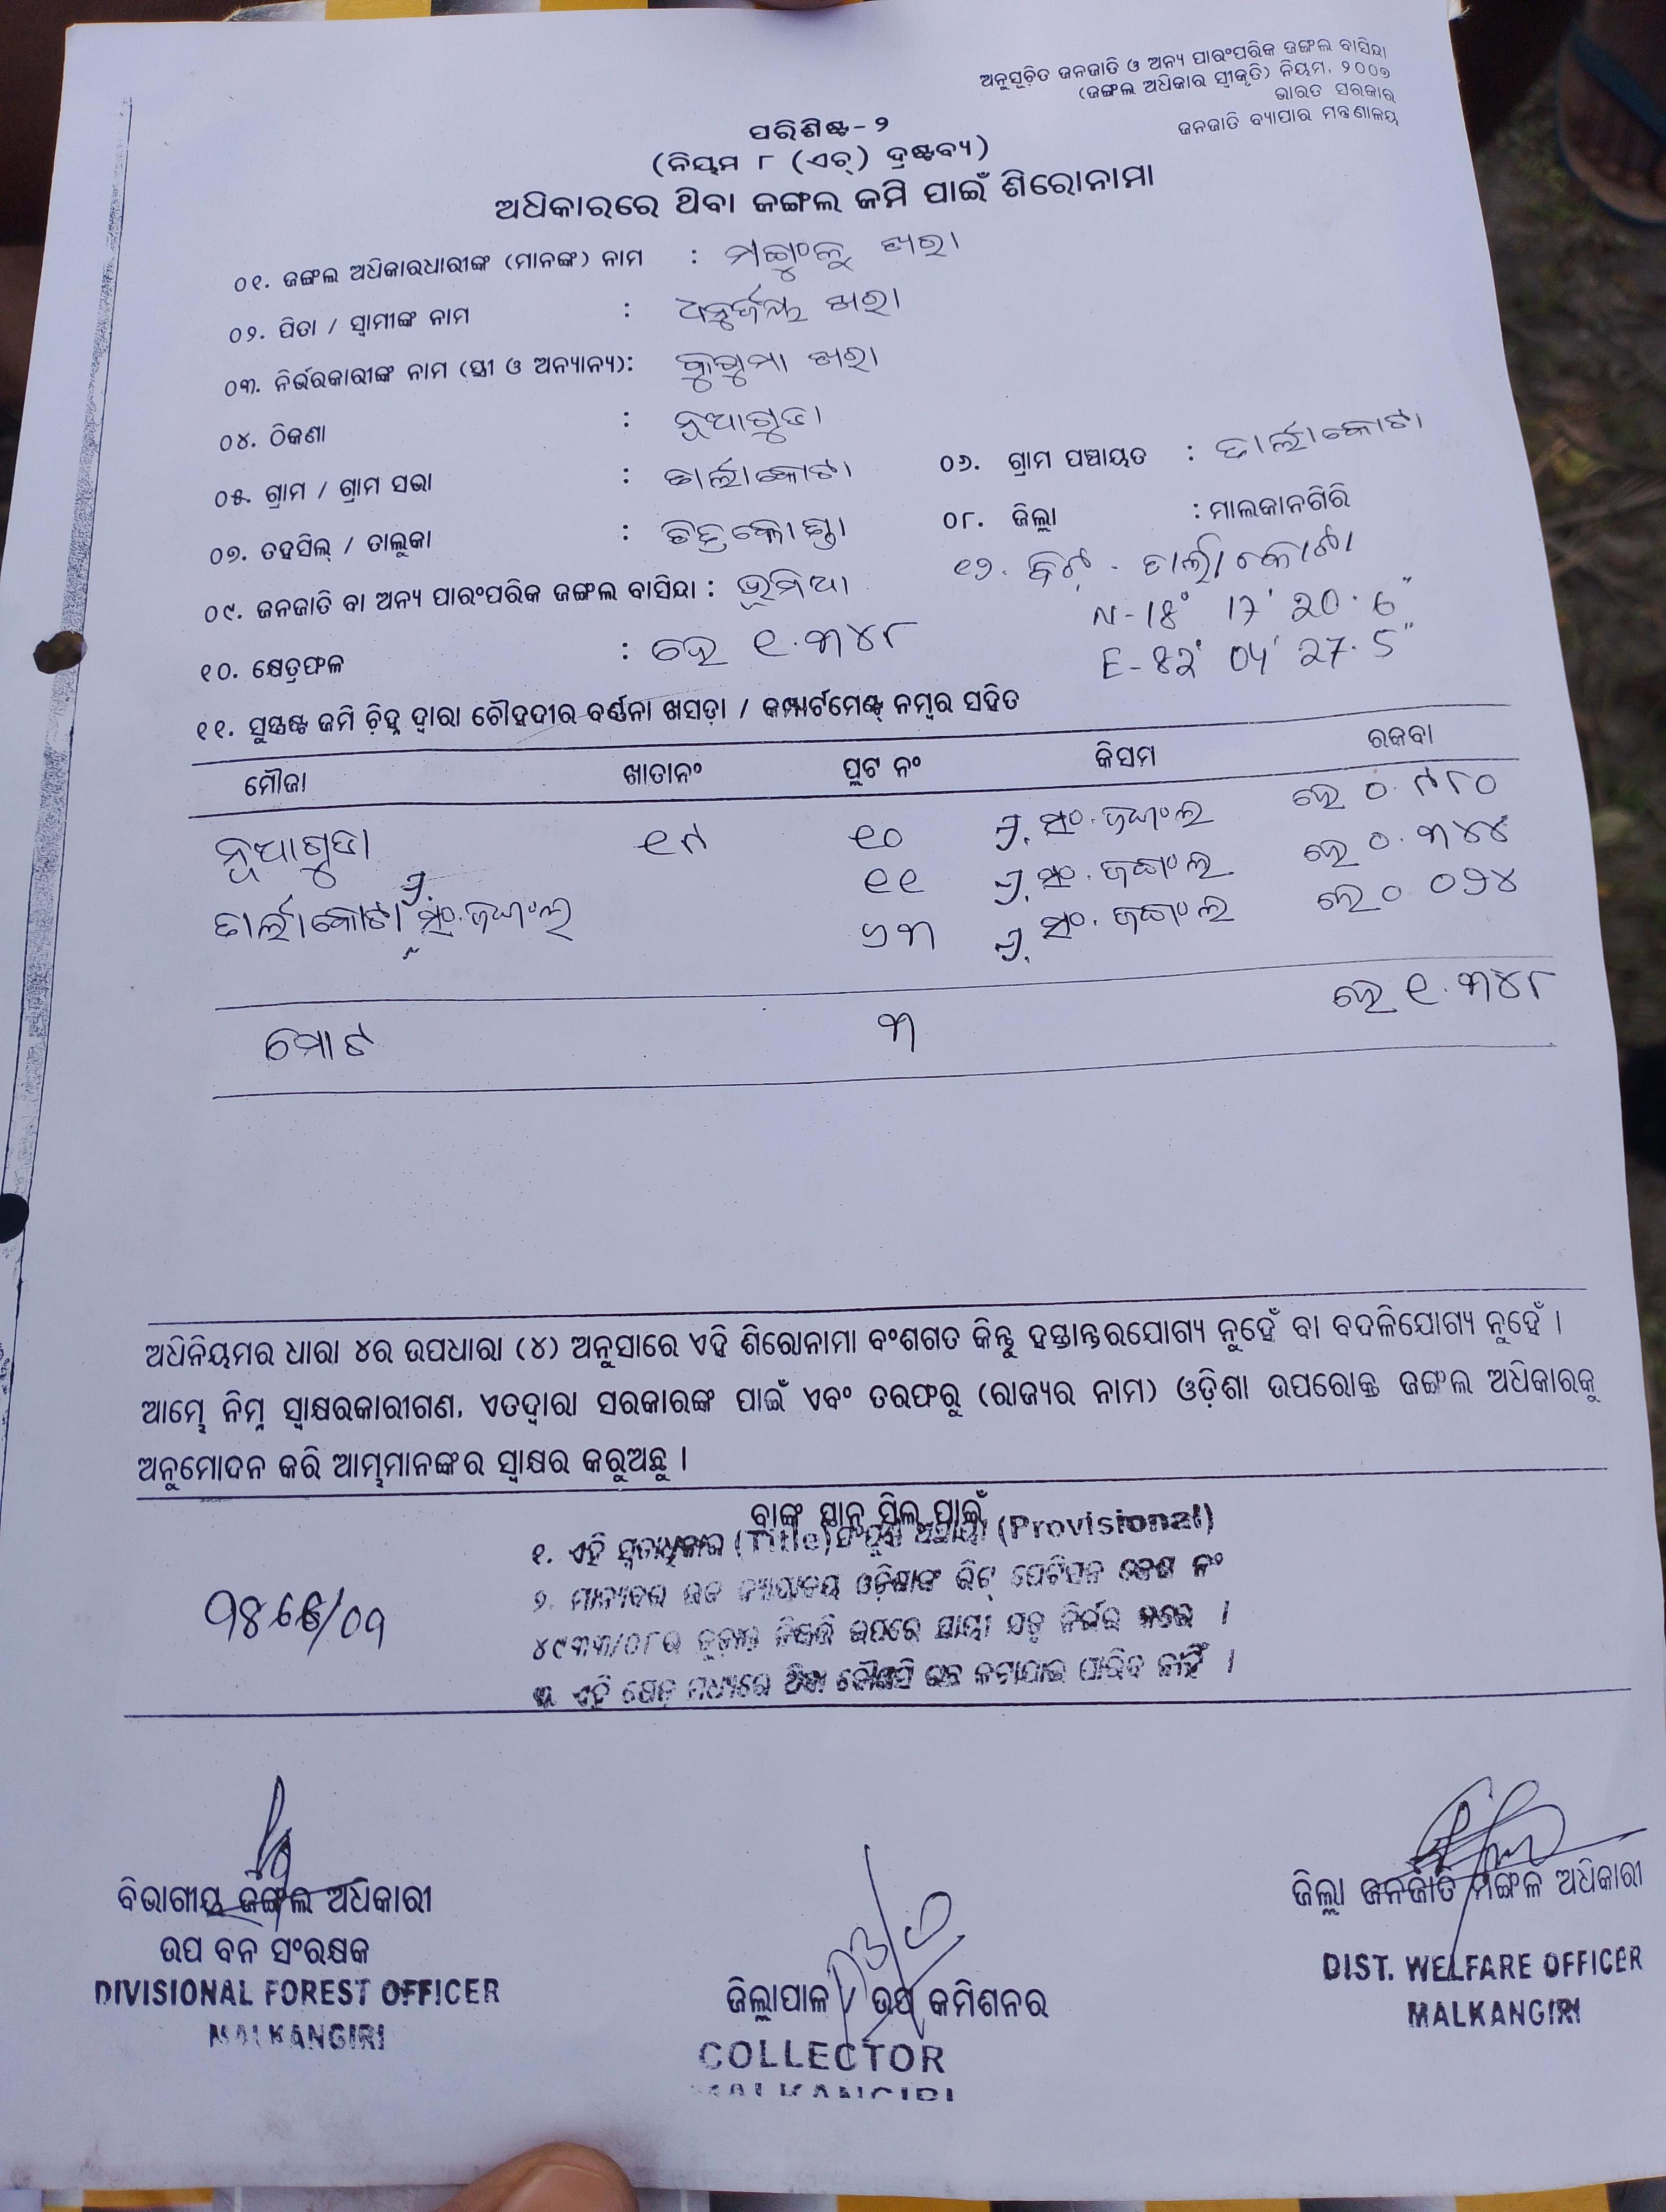 ଅନୁସୂଚିତ ଜନଜାତି ଓ ଅନ୍ୟ ପାରଂପରିକ ଜଙ୍ଗଲ ବାସିନ୍ଦା
(ଜଙ୍ଗଲ ଅଧିକାର ସ୍ୱୀକୃତି) ନିୟମ, ୨୦୦୭
ଭାରତ ସରକାର
ଜନଜାତି ବ୍ୟାପାର ମନ୍ତ୍ରଣାଳୟ
ପରିଶିଷ୍ଟ-୨
(ନିୟମ ୮ (ଏଚ୍) ଦ୍ରଷ୍ଟବ୍ୟ)
ଅଧିକାରରେ ଥିବା ଜଙ୍ଗଲ ଜମି ପାଇଁ ଶିରୋନାମା
୦୧. ଜଙ୍ଗଲ ଅଧିକାରଧାରୀଙ୍କ (ମାନଙ୍କ) ନାମ : ଖରା
୦୨. ପିତା / ସ୍ୱାମୀଙ୍କ ନାମ : ଖରା
୦୩. ନିର୍ଭରକାରୀଙ୍କ ନାମ (ସ୍ତ୍ରୀ ଓ ଅନ୍ୟାନ୍ୟ): ଖରା
୦୪. ଠିକଣା : ନୂଆଗୁଡା
୦୫. ଗ୍ରାମ / ଗ୍ରାମ ସଭା : ଟାର୍ଲାକୋଟା ୦୬. ଗ୍ରାମ ପଞ୍ଚାୟତ : ଟାର୍ଲାକୋଟା
୦୭. ତହସିଲ୍ / ତାଲୁକା : ଚିତ୍ରକୋଣ୍ଡା ୦୮. ଜିଲ୍ଲା : ମାଲକାନଗିରି
୦୯. ଜନଜାତି ବା ଅନ୍ୟ ପାରଂପରିକ ଜଙ୍ଗଲ ବାସିନ୍ଦା : ଭୂମିଆ ୧୨. ବିଟ୍ - ଟାର୍ଲାକୋଟା
N-18° 17' 20.6"
୧୦. କ୍ଷେତ୍ରଫଳ : ହେ ୧.୩୪୮ E-82° 04' 27.5"
୧୧. ସୁସ୍ପଷ୍ଟ ଜମି ଚିହ୍ନ ଦ୍ୱାରା ଚୌହଦୀର ବର୍ଣ୍ଣନା ଖସଡ଼ା / କମ୍ପାର୍ଟମେଣ୍ଟ୍ ନମ୍ବର ସହିତ
ମୌଜା ଖାତାନଂ ପ୍ଲଟ ନଂ କିସମ ରକବା
ନୂଆଗୁଡା ୧୯ ୧୦ ପ୍ର. ସଂ. ଜଙ୍ଗଲ ହେ ୦.୯୮୦
୧୧ ପ୍ର. ସଂ. ଜଙ୍ଗଲ ହେ ୦.୩୪୪
ଟାର୍ଲାକୋଟା ପ୍ର. ସଂ. ଜଙ୍ଗଲ ୬୩ ପ୍ର. ସଂ. ଜଙ୍ଗଲ ହେ ୦ ୦୨୪
ମୋଟ ୩ ହେ ୧.୩୪୮
ଅଧିନିୟମର ଧାରା ୪ର ଉପଧାରା (୪) ଅନୁସାରେ ଏହି ଶିରୋନାମା ବଂଶଗତ କିନ୍ତୁ ହସ୍ତାନ୍ତରଯୋଗ୍ୟ ନୁହେଁ ବା ବଦଳିଯୋଗ୍ୟ ନୁହେଁ ।
ଆମ୍ଭେ ନିମ୍ନ ସ୍ୱାକ୍ଷରକାରୀଗଣ, ଏତଦ୍ୱାରା ସରକାରଙ୍କ ପାଇଁ ଏବଂ ତରଫରୁ (ରାଜ୍ୟର ନାମ) ଓଡ଼ିଶା ଉପରୋକ୍ତ ଜଙ୍ଗଲ ଅଧିକାରକୁ
ଅନୁମୋଦନ କରି ଆମ୍ଭମାନଙ୍କର ସ୍ୱାକ୍ଷର କରୁଅଛୁ ।
ପାଇଁ
୧. ଏହି (Title) ଅସ୍ଥାୟୀ (Provisional)
୨. ମାନ୍ୟବର ଓଡ଼ିଶାଙ୍କ ରିଟ୍ ପେଟିସନ କେଶ ନଂ
୪୯୩୩/୦୮ର ଉପରେ ନିର୍ଭର କରେ ।
୩. ଏହି ପାରିବ ନାହିଁ ।
ବିଭାଗୀୟ ଜଙ୍ଗଲ ଅଧିକାରୀ
ଉପ ବନ ସଂରକ୍ଷକ
DIVISIONAL FOREST OFFICER
MALKANGIRI
ଜିଲ୍ଲାପାଳ / ଉପ କମିଶନର
COLLECTOR
MALKANGIRI
ଜିଲ୍ଲା ଜନଜାତି ମଙ୍ଗଳ ଅଧିକାରୀ
DIST. WELFARE OFFICER
MALKANGIRI